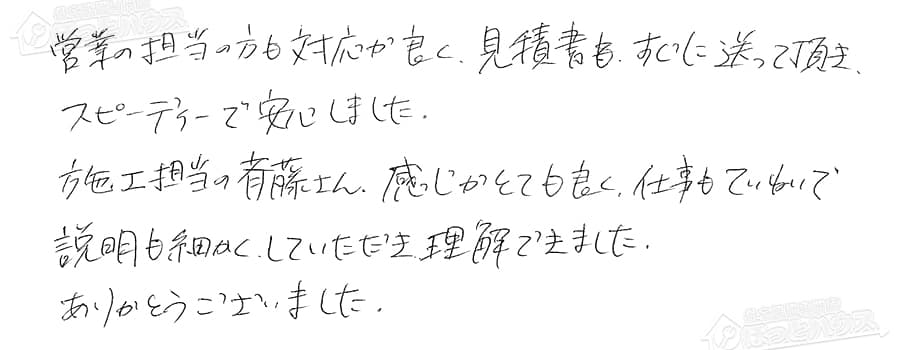 営業の担当の方も対応が良く、見積書も、すぐに送って頂き、
スピーディーで安心しました。
施工担当の斉藤さん、感じがとても良く、仕事もていねいで
説明も細かく、していただき、理解できました。
ありがとうございました。
住宅設備専門館
ほっとハウス